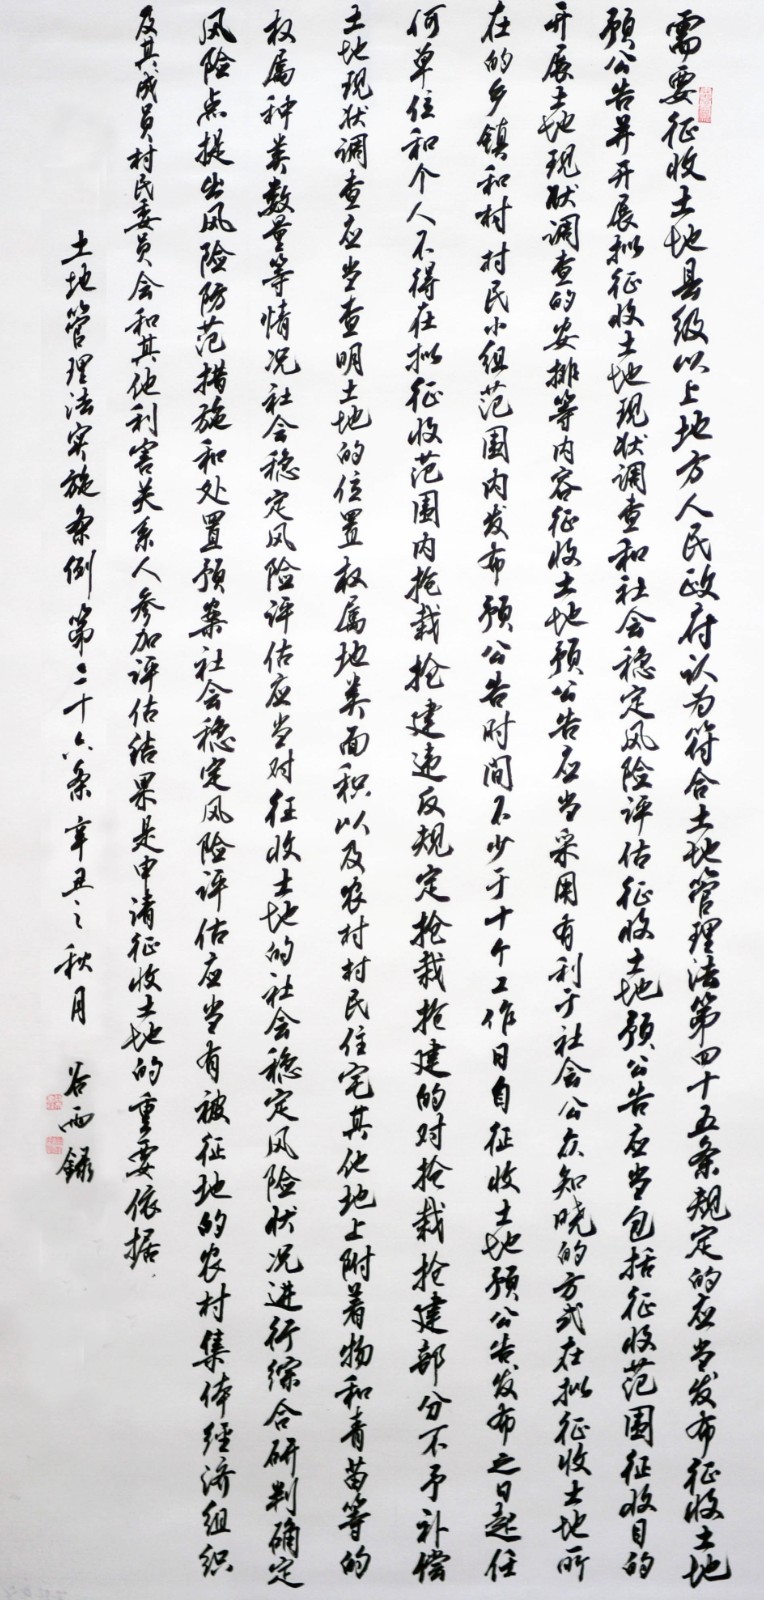 需要征收土地县级以上地方人民政府认为符合土地管理法第四十五条规定的应当发布征收土地
预公告并开展拟征收土地现状调查和社会稳定风险评估征收土地预公告应当包括征收范围征收目的
开展土地现状调查的安排等内容征收土地预公告应当采用有利于社会公众知晓的方式在拟征收土地所
在的乡镇和村村民小组范围内发布预公告时间不少于十个工作日自征收土地预公告发布之日起任
何单位和个人不得在拟征收范围内抢栽抢建违反规定抢栽抢建的对抢栽抢建部分不予补偿
土地现状调查应当查明土地的位置权属地类面积以及农村村民住宅其他地上附着物和青苗等的
权属种类数量等情况社会稳定风险评估应当对征收土地的社会稳定风险状况进行综合研判确定
风险点提出风险防范措施和处置预案社会稳定风险评估应当有被征地的农村集体经济组织
及其成员村民委员会和其他利害关系人参加评估结果是申请征收土地的重要依据
土地管理法实施条例第二十六条辛丑之秋月 谷雨录